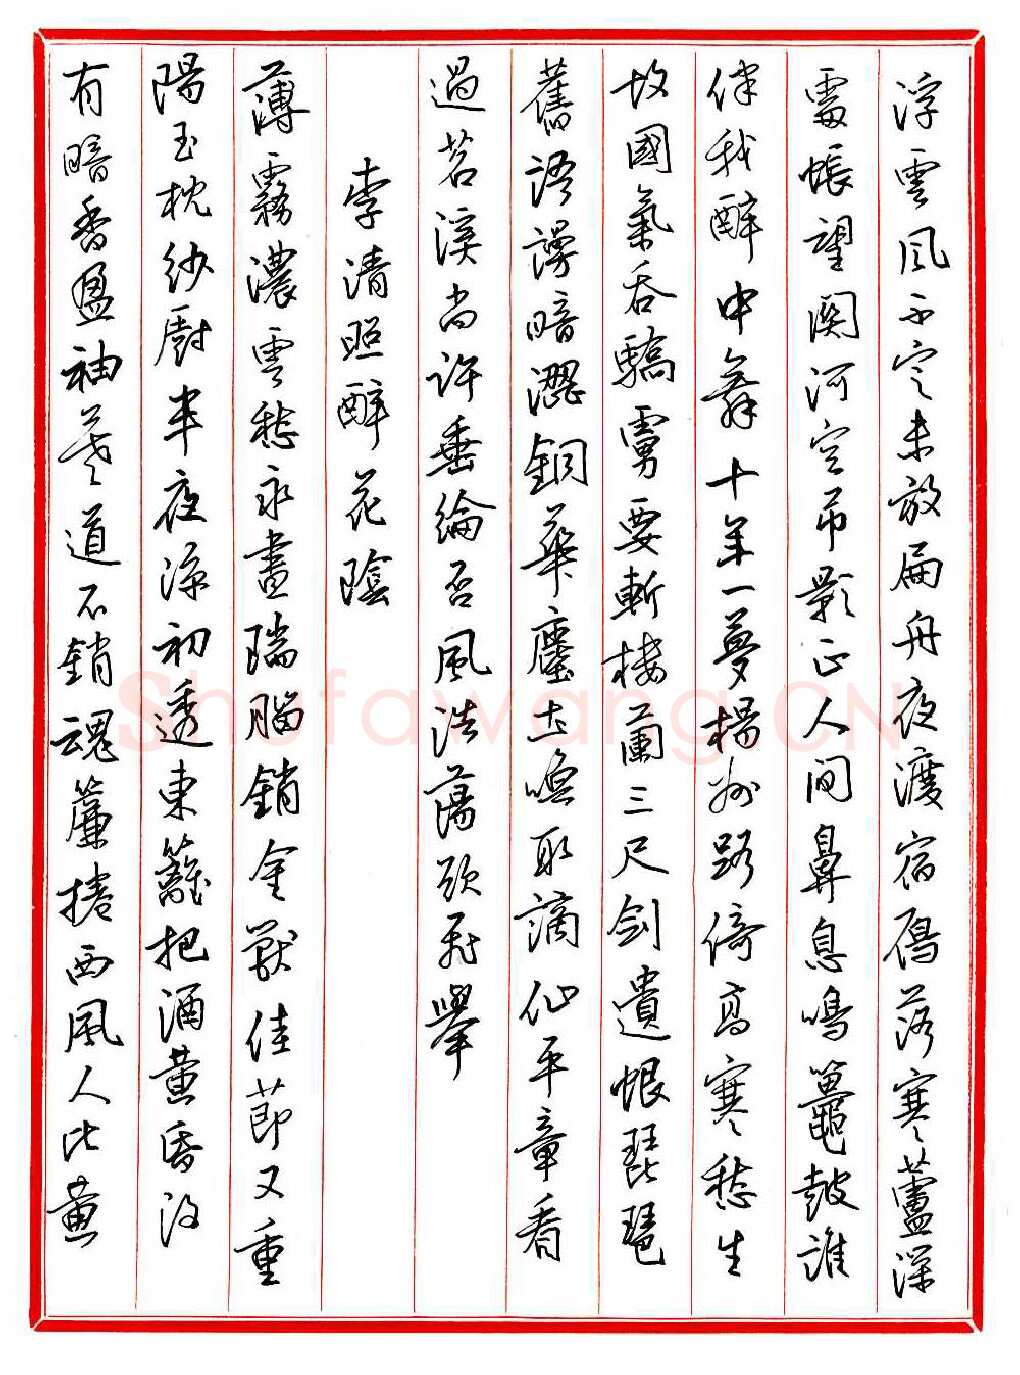 浮雲風不定未放扁舟夜渡宿雁落寒蘆深
處悵望關河空吊影正人間鼻息鳴鼉鼓誰
伴我醉中舞十年一夢楊州路倚高寒愁生
故國氣吞驕虜要斬樓蘭三尺劍遺恨琵琶
舊語謾暗澀銅華塵土喚取謫仙平章看
過苕溪尚許垂綸否風浩蕩欲飛舉
李清照醉花陰
薄霧濃雲愁永晝瑞腦銷金獸佳節又重
陽玉枕紗廚半夜涼初透東籬把酒黃昏後
有暗香盈袖莫道不銷魂簾捲西風人比黃
Shufawang.CN